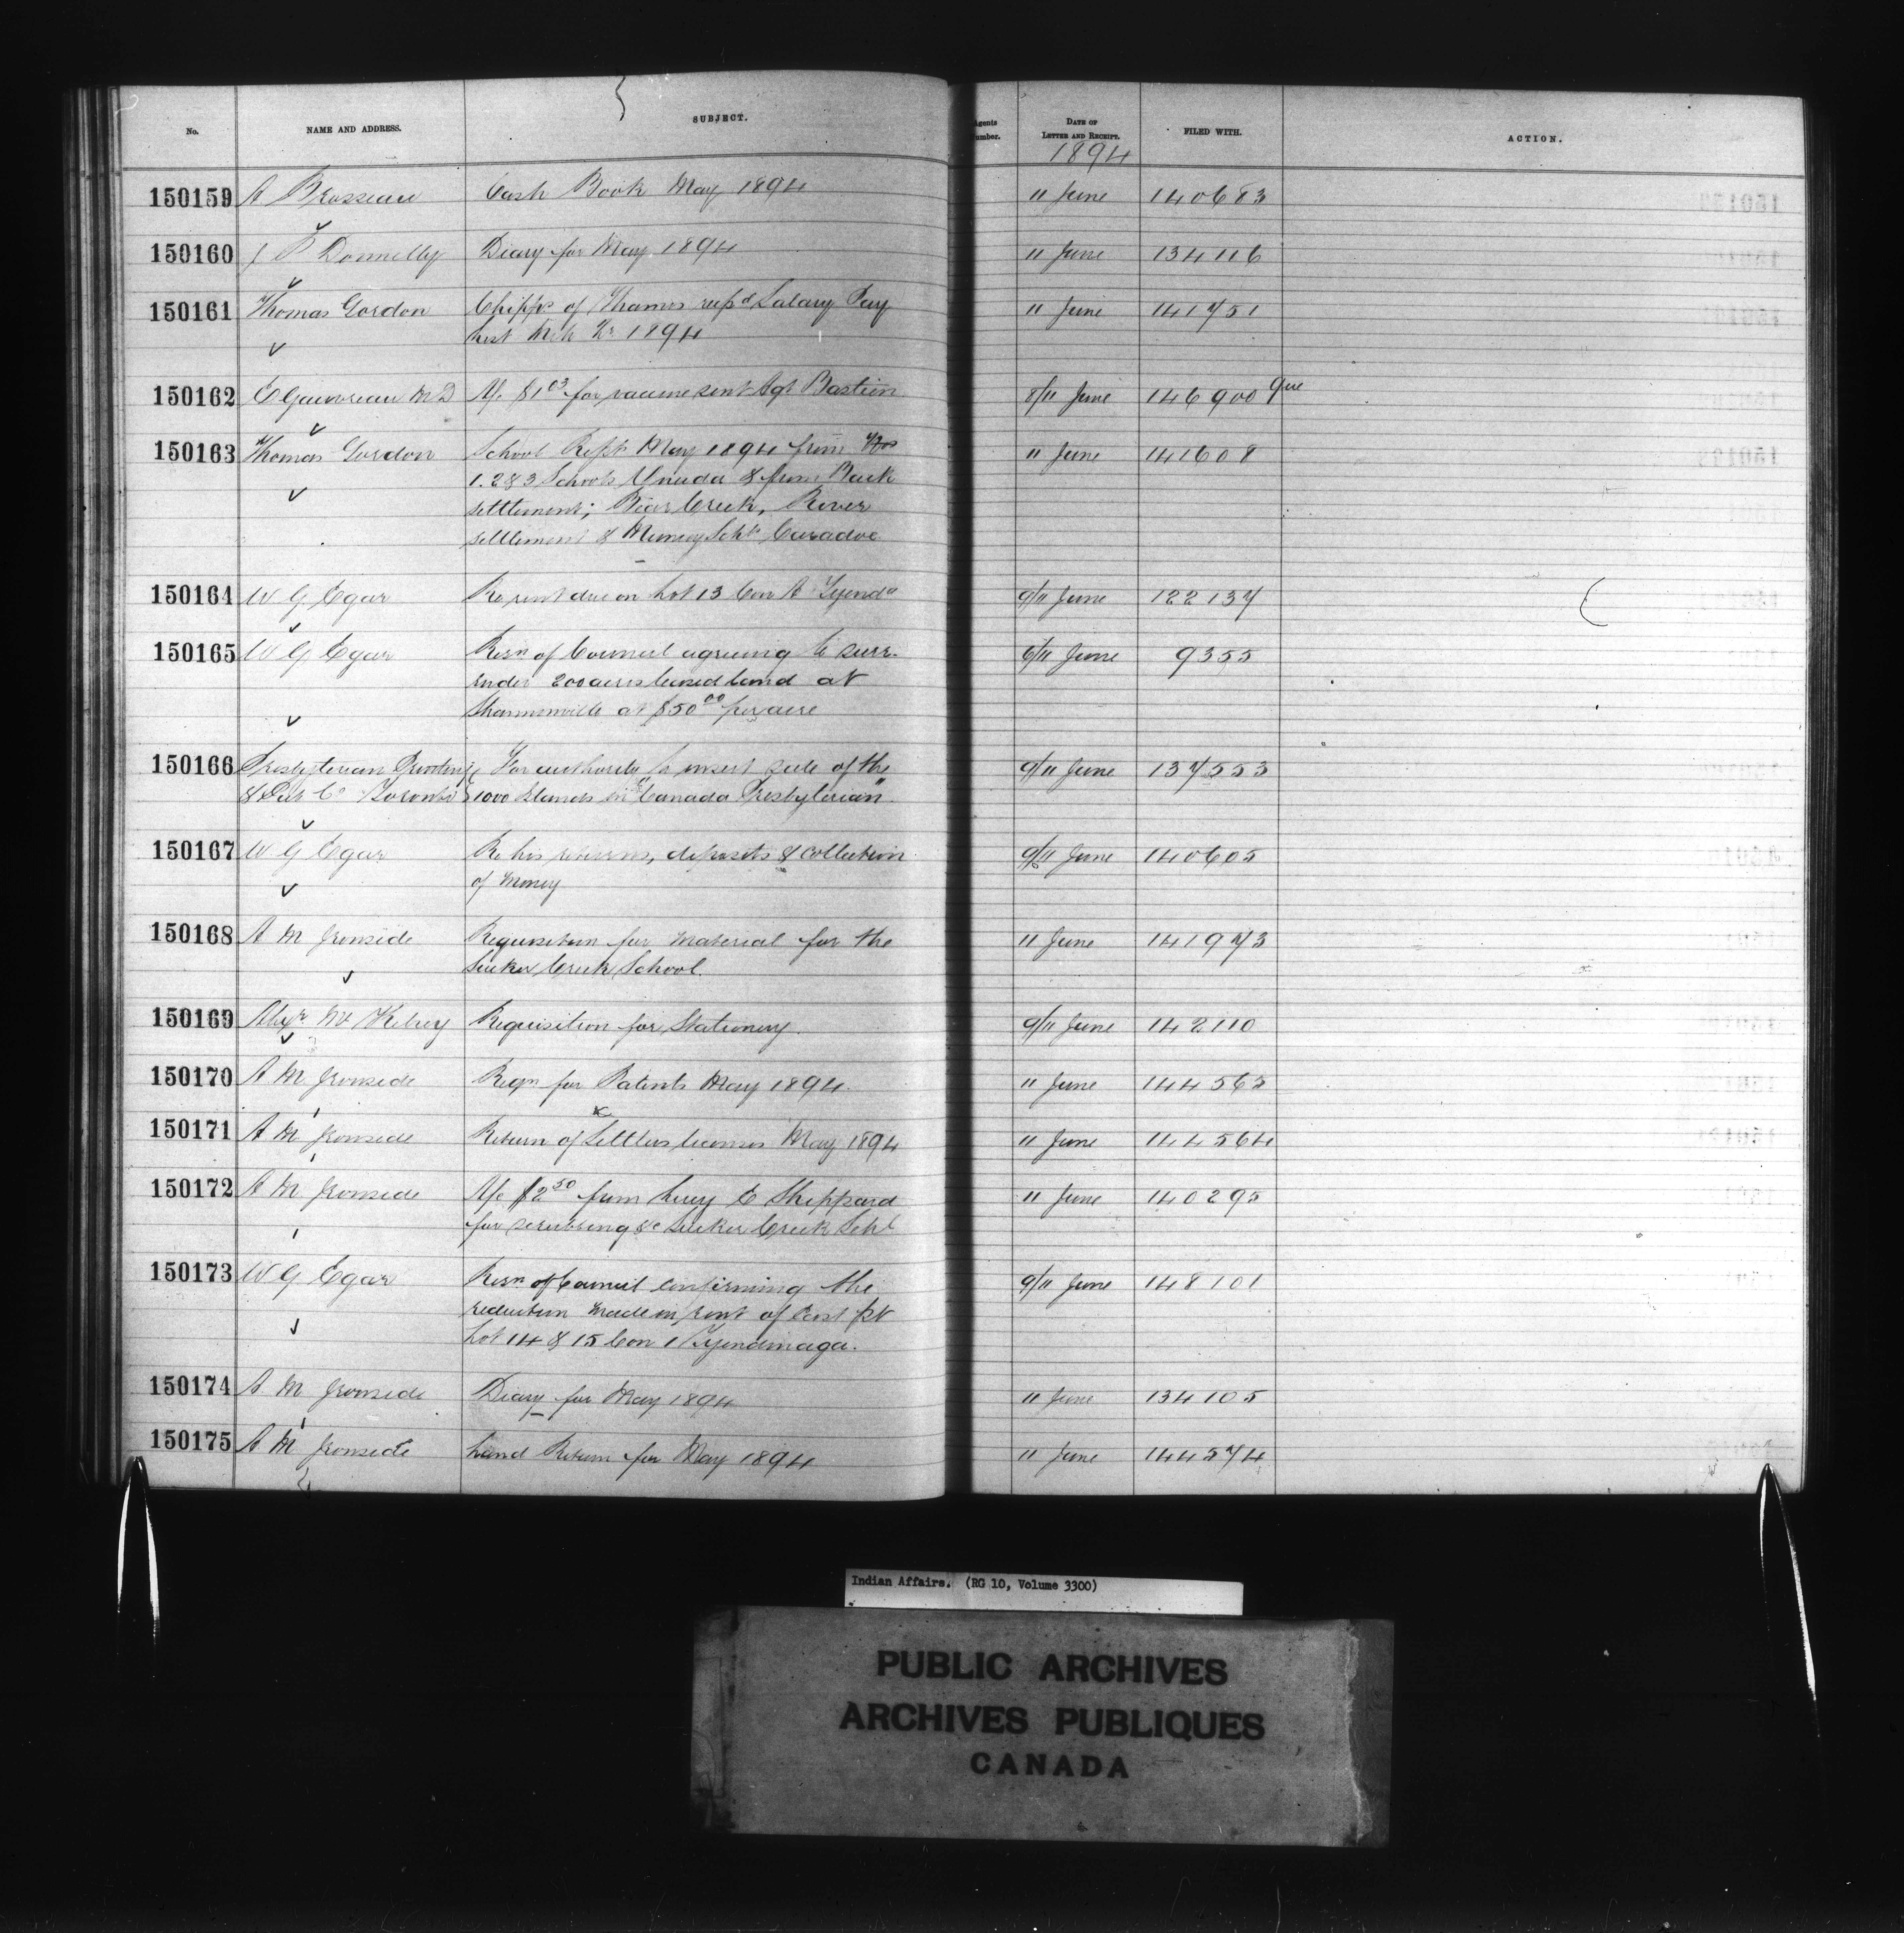 No. NAME AND ADDRESS. SUBJECT. Agents Number. DATE OF LETTER AND RECEIPT. FILED WITH. ACTION.
1894
150159 A Brosseau Cash Book May 1894 11 June 140683
150160 J P Donnelly Diary for May 1894 11 June 134116
150161 Thomas Gordon Chipps of Thames Salary Pay 11 June 141751
List 1894
150162 E Gauvreau M D A/c $1 03 for vaccine sent Agt Bastien 8/11 June 146900 Que
150163 Thomas Gordon School Repts May 1894 from Nos 11 June 141608
1. 2 & 3 Schools Oneida & from Back
settlement; Bear Creek, River
settlement & Muncey Schls Caradoc
150164 W G Egar Re rent due on Lot 13 Con A Tyenda 9/11 June 122137
150165 W G Egar Resn of Council agreeing to surr- 6/11 June 9355
ender 200 acres leased land at
Shannonville at $50 00 per acre
150166 Presbyterian Printing For authority to insert sale of the 9/11 June 137553
& Pub Co Toronto 1000 Islands in "Canada Presbyterian"
150167 W G Egar Re his returns, deposits & collection 9/11 June 140605
of money
150168 A M Ironside Requisition for material for the 11 June 141973
Sucker Creek School.
150169 Alexr McKelvey Requisition for Stationery. 9/11 June 142110
150170 A M Ironside Reqn for Patents May 1894. 11 June 144563
150171 A M Ironside Return of Settlers licenses May 1894 11 June 144564
150172 A M Ironside A/c $2 50 from Lucy E Sheppard 11 June 140295
for scrubbing &c Sucker Creek Schl
150173 W G Egar Resn of Council confirming the 9/11 June 148101
reduction made in rent of East pt
Lot 14 & 15 Con 1 Tyendinaga.
150174 A M Ironside Diary for May 1894 11 June 134105
150175 A M Ironside Land Return for May 1894 11 June 144574
Indian Affairs. (RG 10, Volume 3300)
PUBLIC ARCHIVES
ARCHIVES PUBLIQUES
CANADA